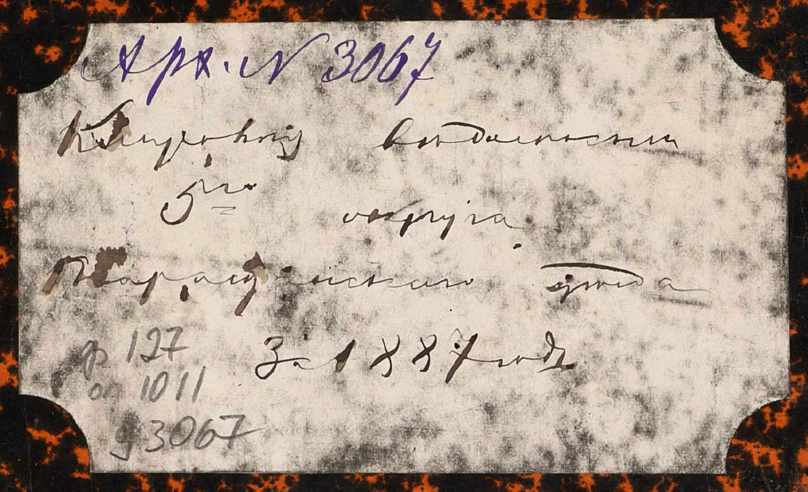 Арх. N 3067
Клировыя вѣдомости
5го округа
Таращанскаго уѣзда
За 1887 годъ
ф 127
оп 1011
д 3067